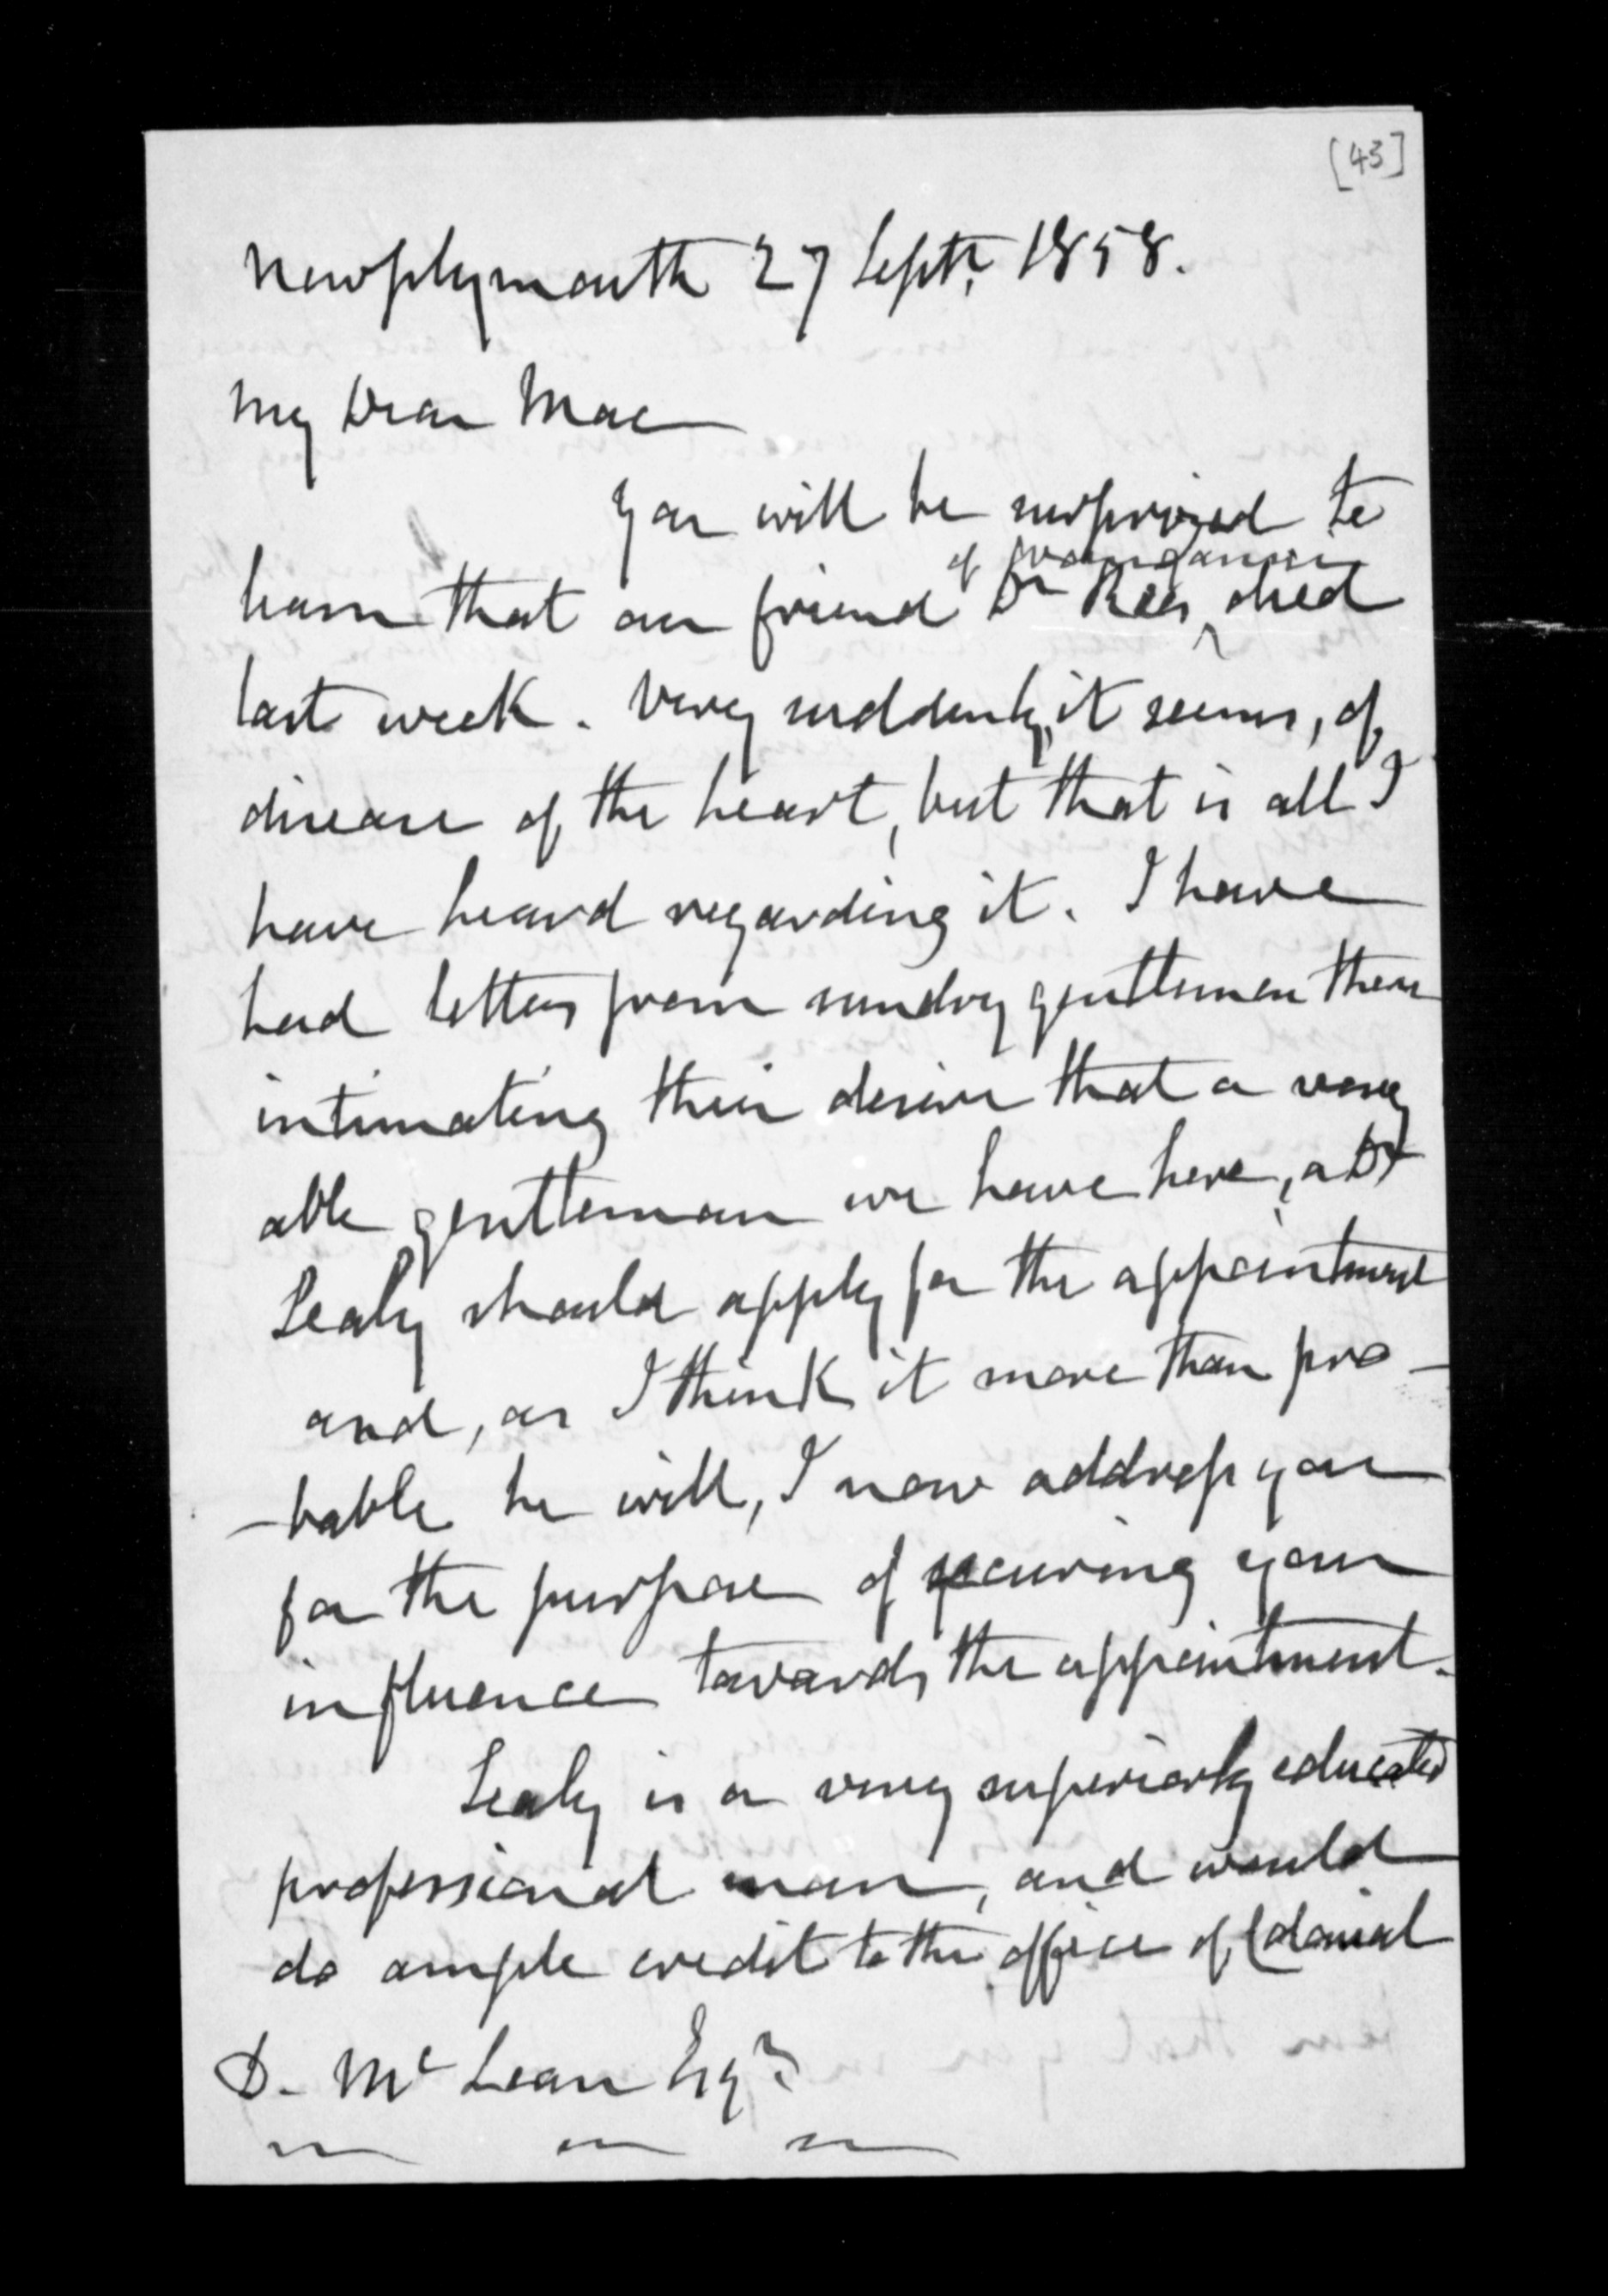 [43]
Newplymouth 27 Septr. 1858.
My Dear Mac
You will be surprized to
of Wanganui
learn that our friend Dr Rees, died
last week. Very suddenly, it seems, of
disease of the heart, but that is all I
have heard regarding it. I have
had letters from sundry gentlemen there
intimating their desire that a very
able gentleman we have here, a Dr
Sealy should apply for the appointment
and, as I think it more than pro-
-bable he will, I now address you
for the purpose of securing your
influence towards the appointment.
Sealy is a very superiorly educated
professional man, and would
do ample credit to the office of Colonial
D. McLean Esqr